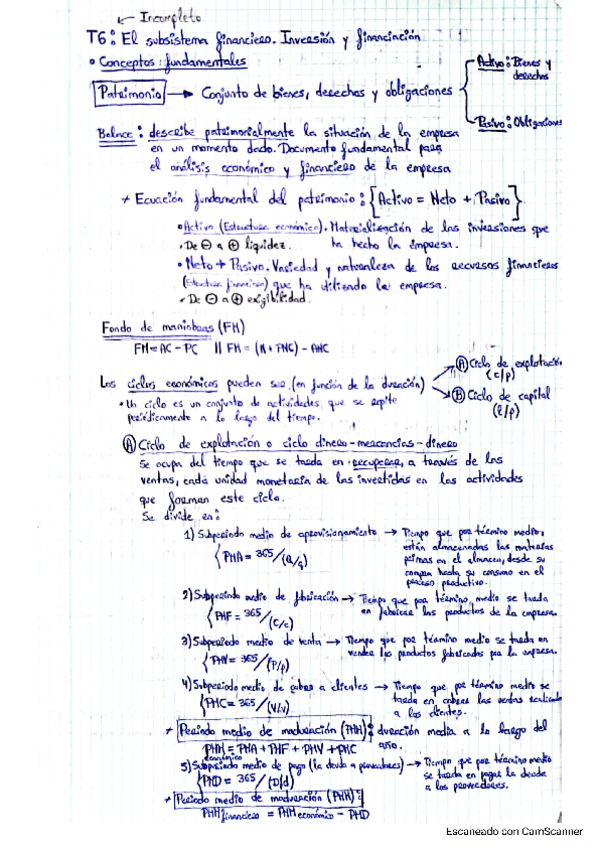 ← Incompleto
T6: El subsistema financiero. Inversión y financiación
• Conceptos fundamentales
Patrimonio → Conjunto de bienes, derechos y obligaciones
Activo: Bienes y
derechos
Pasivo: Obligaciones
Balance: describe patrimonialmente la situación de la empresa
en un momento dado. Documento fundamental para
el análisis económico y financiero de la empresa
+ Ecuación fundamental del patrimonio: [Activo = Neto + Pasivo]
• Activo (Estructura económica). Materialización de las inversiones que
ha hecho la empresa.
• De ⊖ a ⊕ liquidez.
• Neto + Pasivo. Variedad y naturaleza de los recursos financieros
(Estructura financiera) que ha utilizado la empresa.
• De ⊖ a ⊕ exigibilidad.
Fondo de maniobras (FM)
FM = AC - PC || FM = (N + PNC) - ANC
Los ciclos económicos pueden ser (en función de la duración)
Ⓐ Ciclo de explotación
(c/p)
Ⓑ Ciclo de capital
(l/p)
• Un ciclo es un conjunto de actividades que se repite
periódicamente a lo largo del tiempo.
Ⓐ Ciclo de explotación o ciclo dinero - mercancías - dinero
Se ocupa del tiempo que se tarda en recuperar, a través de las
ventas, cada unidad monetaria de las invertidas en las actividades
que forman este ciclo.
Se divide en:
1) Subperiodo medio de aprovisionamiento → Tiempo que por término medio,
están almacenadas las materias
primas en el almacén, desde su
compra hasta su consumo en el
proceso productivo.
PMA = 365/(Q/q)
2) Subperiodo medio de fabricación → Tiempo que por término medio se tarda
en fabricar los productos de la empresa.
PMF = 365/(C/c)
3) Subperiodo medio de venta → Tiempo que por término medio se tarda en
vender los productos fabricados por la empresa.
PMV = 365/(P/p)
4) Subperiodo medio de cobro a clientes → Tiempo que por término medio se
tarda en cobrar las ventas realizadas
a los clientes.
PMC = 365/(V/v)
+ Periodo medio de maduración (PMM): duración media a lo largo del
año.
PMM económico = PMA + PMF + PMV + PMC
5) Subperiodo medio de pago (la deuda a proveedores) → Tiempo que por término medio
se tarda en pagar la deuda
a los proveedores.
PMD = 365/(D/d)
+ Periodo medio de maduración (PMM):
PMM financiero = PMM económico - PMD
Escaneado con CamScanner